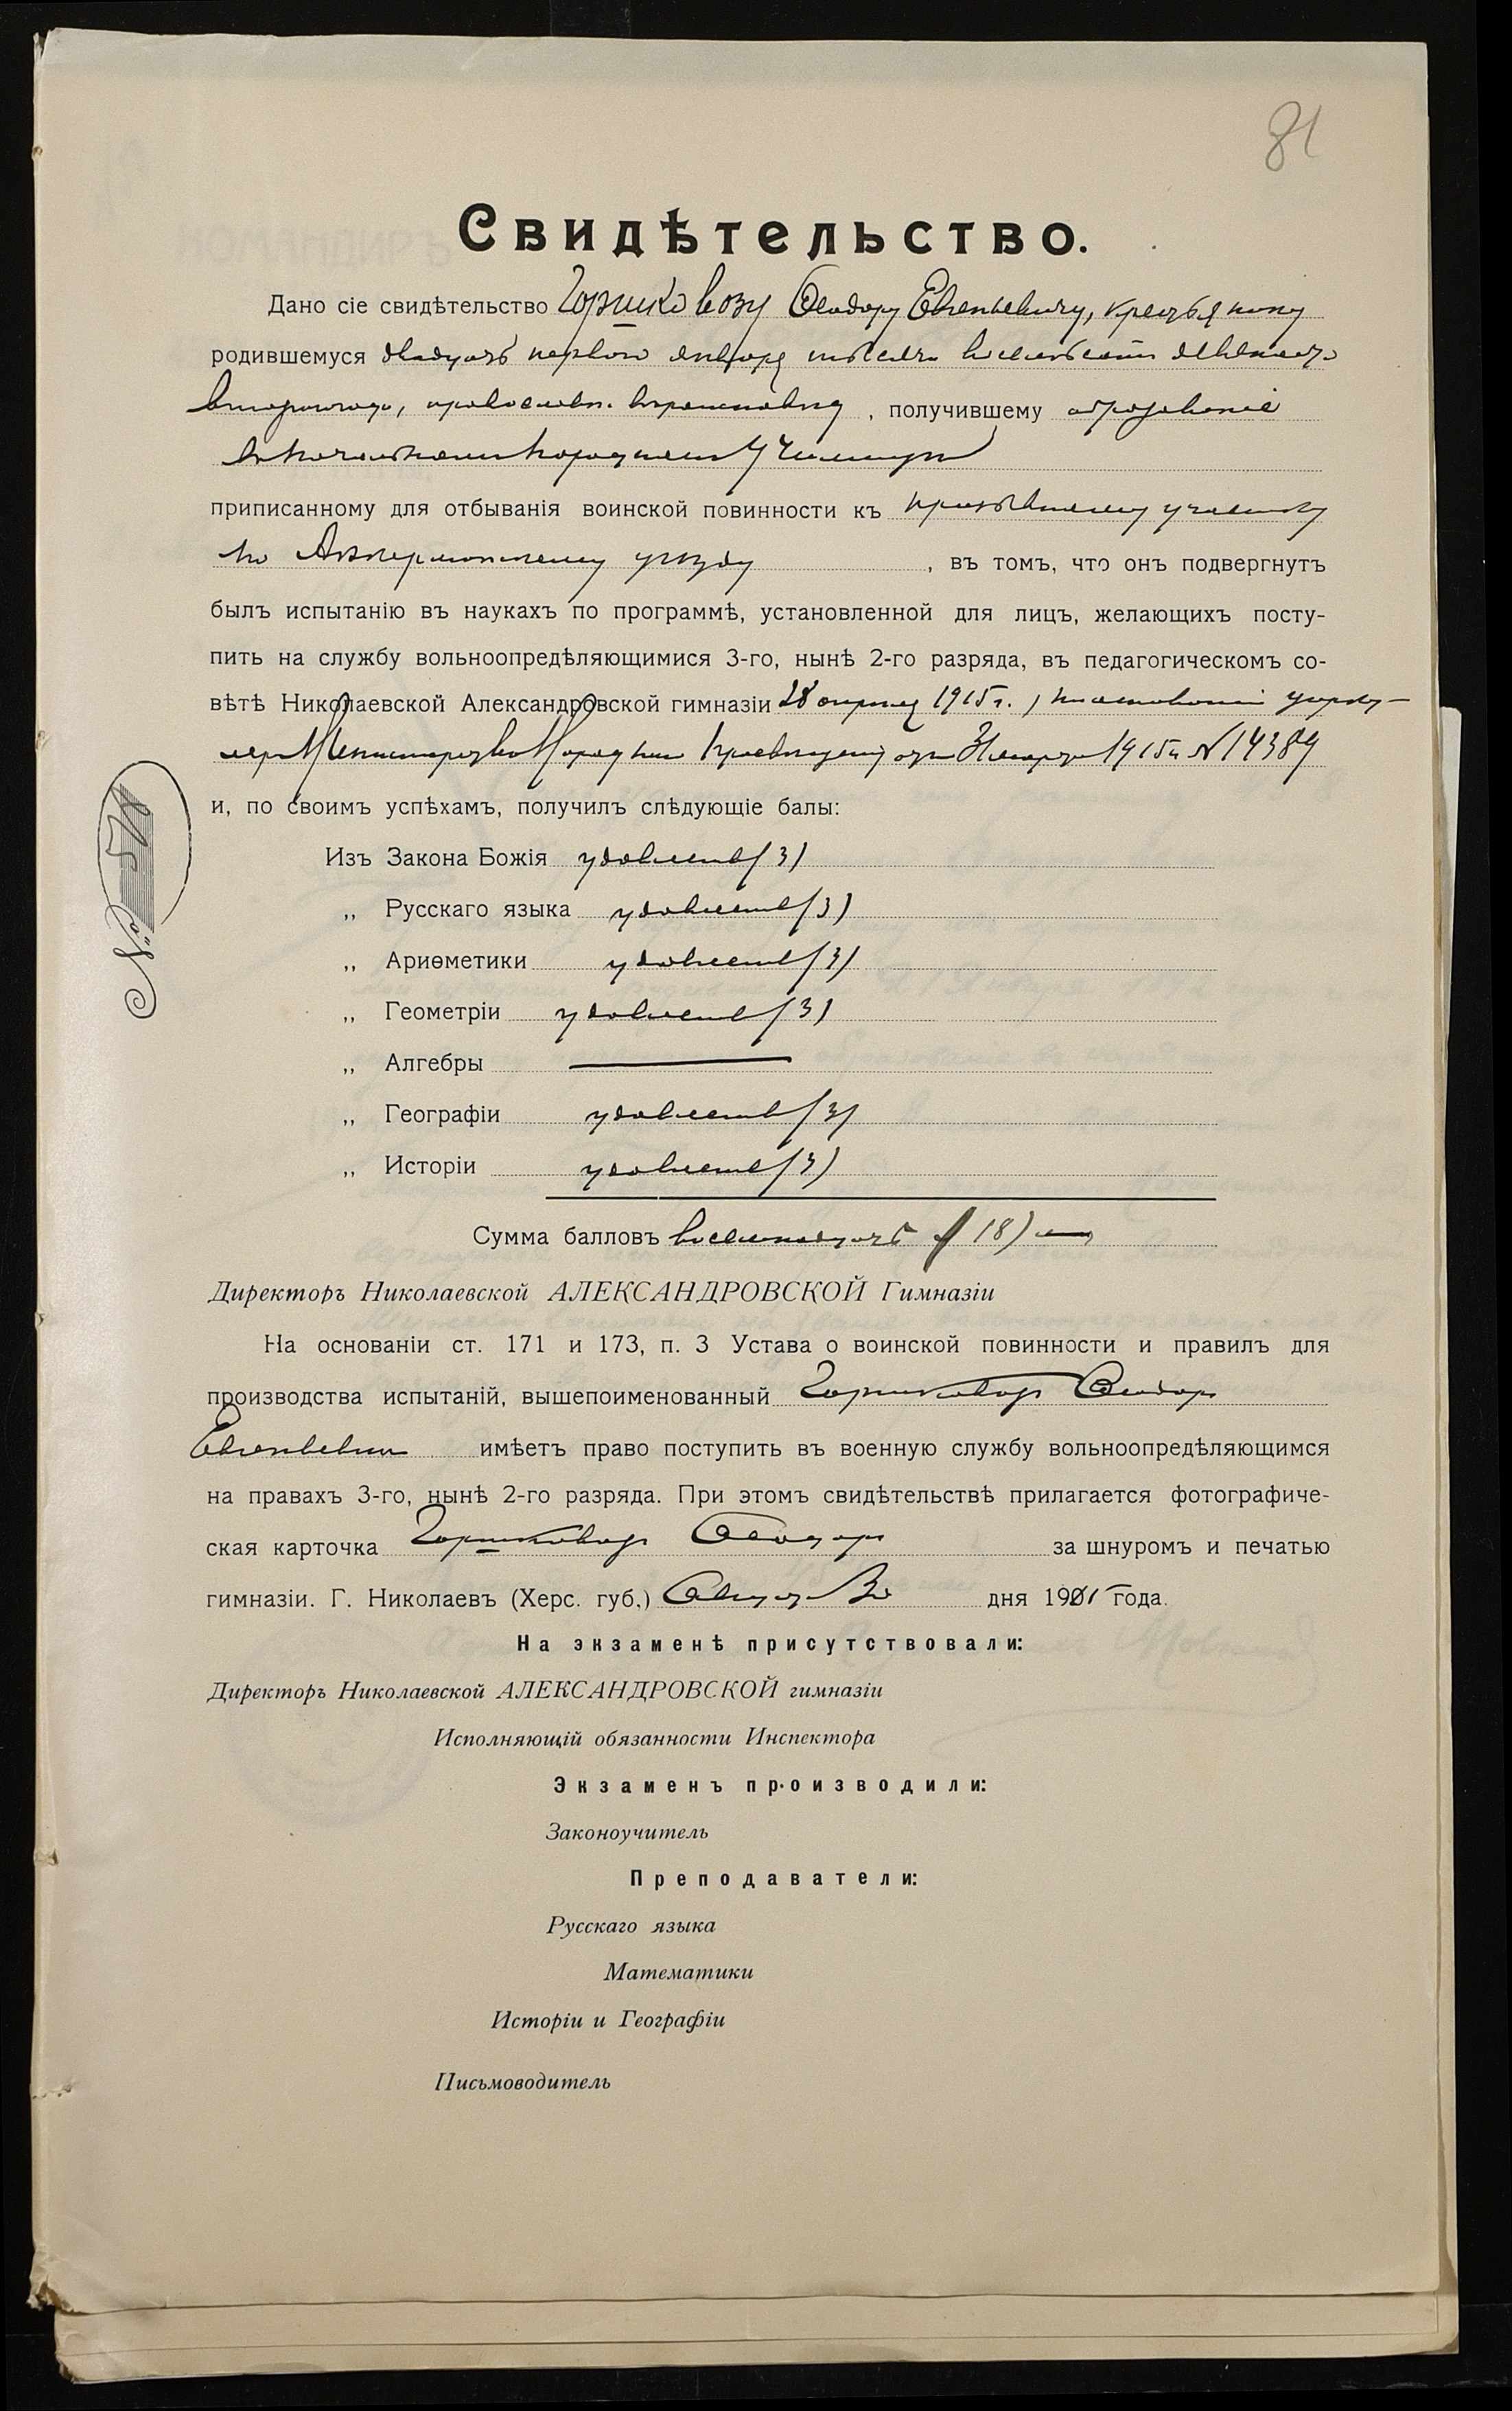 81
Свидѣтельство.
Дано сіе свидѣтельство Горшковозу Ѳеодору Евгеньевичу, крестьянину
родившемуся двадцать перваго января тысяча восемьсотъ девяносто
второго года, православн. вѣроисповѣд, получившему образованіе
въ начальномъ народномъ училищѣ
приписанному для отбыванія воинской повинности къ призывному участку
по Аккерманскому уѣзду, въ томъ, что онъ подвергнутъ
былъ испытанію въ наукахъ по программѣ, установленной для лицъ, желающихъ посту-
пить на службу вольноопредѣляющимися 3-го, нынѣ 2-го разряда, въ педагогическомъ со-
вѣтѣ Николаевской Александровской гимназіи 28 апрѣля 1915 г., на основаніи цирку-
ляра Министерства Народнаго Просвѣщенія отъ 31 марта 1915 г. № 14389
и, по своимъ успѣхамъ, получилъ слѣдующіе балы:
№
Изъ Закона Божія удовлетв (3)
„ Русскаго языка удовлетв (3)
„ Ариѳметики удовлетв (3)
„ Геометріи удовлетв (3)
„ Алгебры —
„ Географіи удовлетв (3)
„ Исторіи удовлетв (3)
Сумма балловъ восемнадцать (18)
Директоръ Николаевской АЛЕКСАНДРОВСКОЙ Гимназіи
На основаніи ст. 171 и 173, п. 3 Устава о воинской повинности и правилъ для
производства испытаній, вышепоименованный Ѳеодоръ
Евгеньевичъ имѣетъ право поступить въ военную службу вольноопредѣляющимся
на правахъ 3-го, нынѣ 2-го разряда. При этомъ свидѣтельствѣ прилагается фотографиче-
ская карточка Ѳеодоръ за шнуромъ и печатью
гимназіи. Г. Николаевъ (Херс. губ.) дня 19 года.
На экзаменѣ присутствовали:
Директоръ Николаевской АЛЕКСАНДРОВСКОЙ гимназіи
Исполняющій обязанности Инспектора
Экзаменъ производили:
Законоучитель
Преподаватели:
Русскаго языка
Математики
Исторіи и Географіи
Письмоводитель